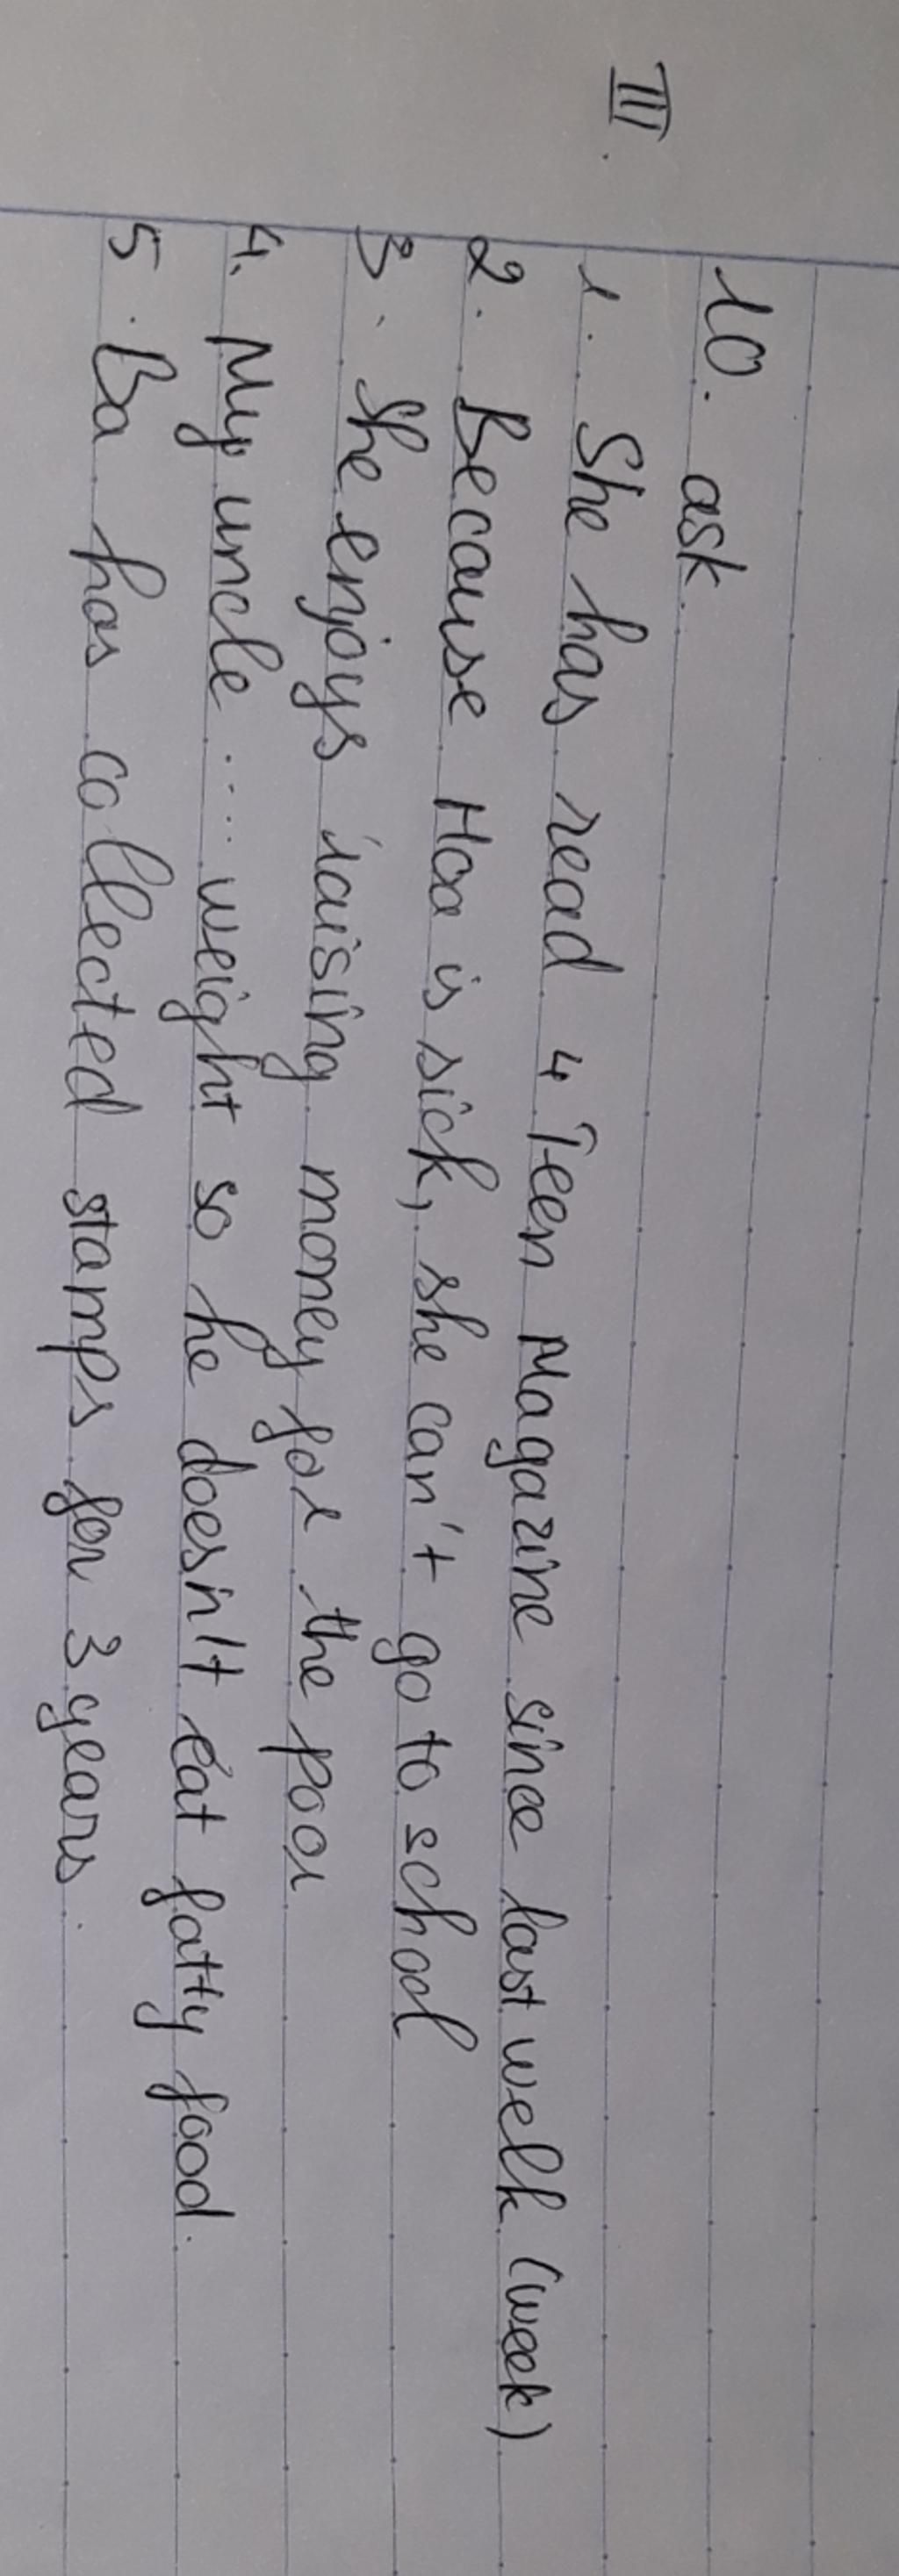 10. ask.
III. 1. She has read 4 Teen Magazine since last welk (week)
2. Because Hoa is sick, she can't go to school
3. She enjoys raising money for the poor
4. My uncle .... weight so he doesn't eat fatty food.
5. Ba has collected stamps for 3 years.